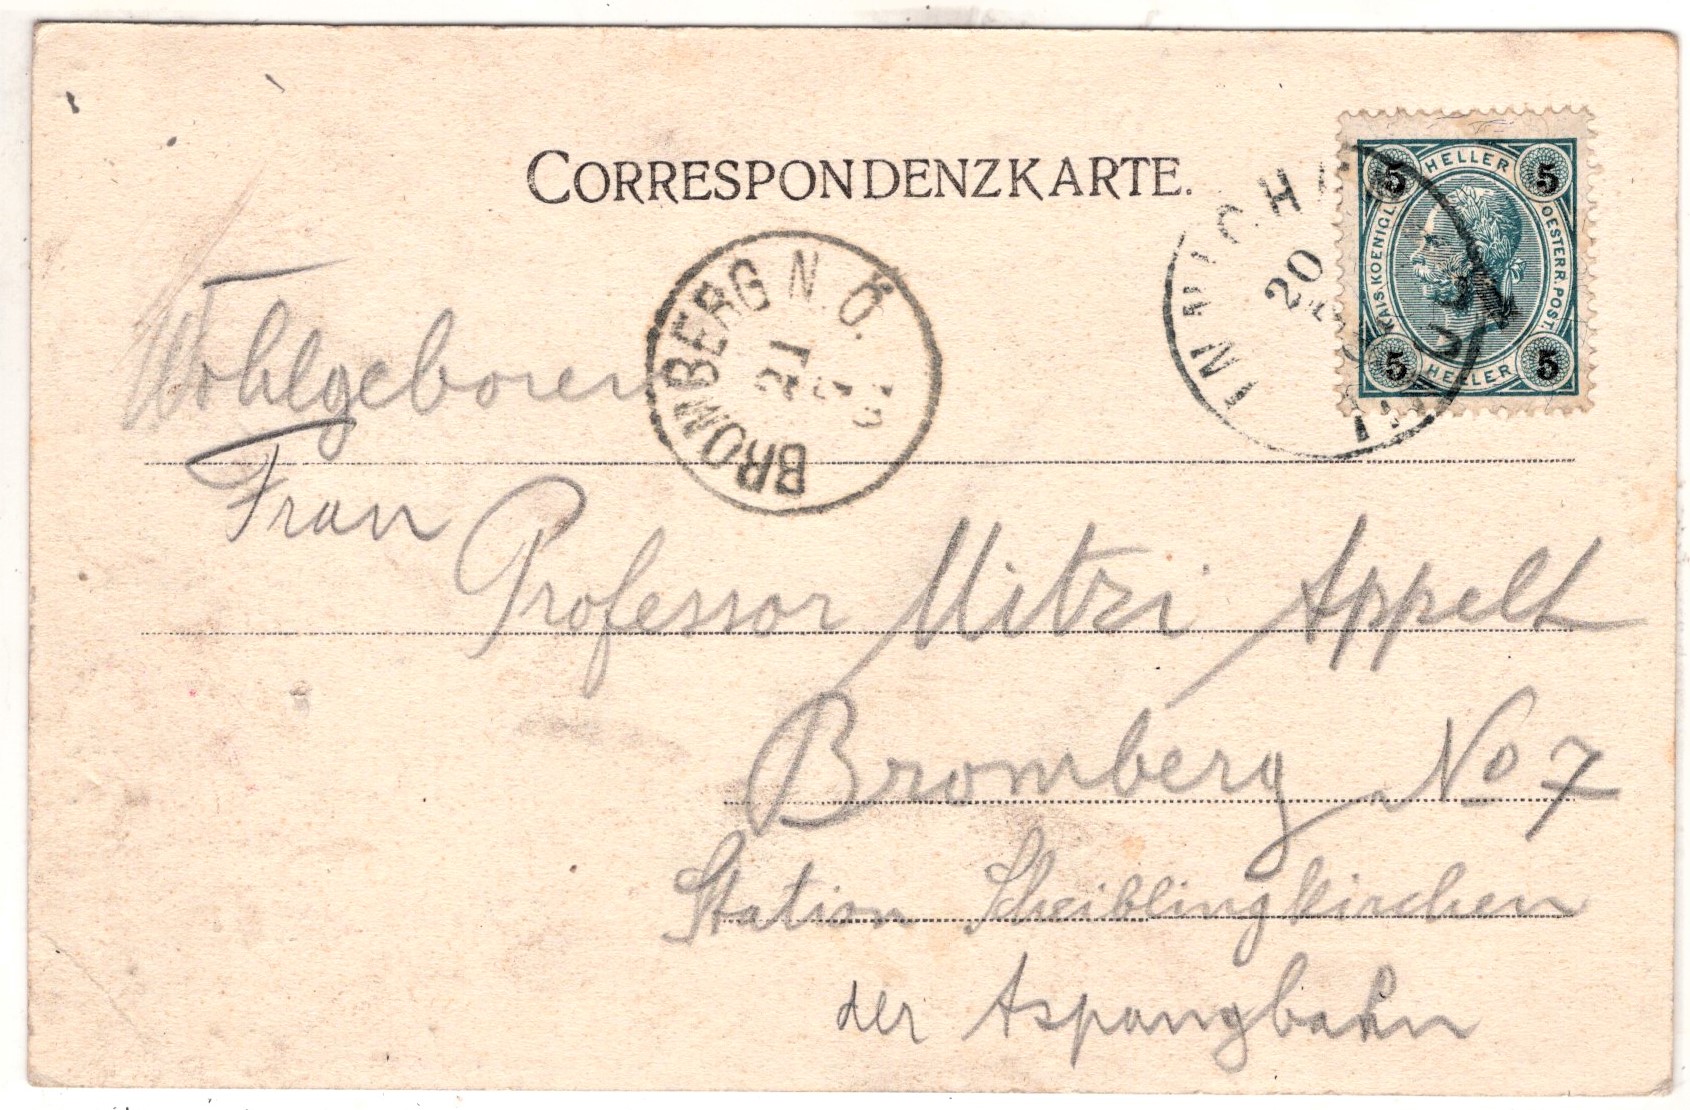 CORRESPONDENZKARTE.
5 HELLER 5
KAIS. KOENIGL. OESTERR. POST.
5 HELLER 5
INNICHEN
20
BROMBERG N.Ö.
21
Wohlgeboren
Frau
Professor Mitzi Appelt
Bromberg No 7
Station Scheiblingkirchen
der Aspangbahn